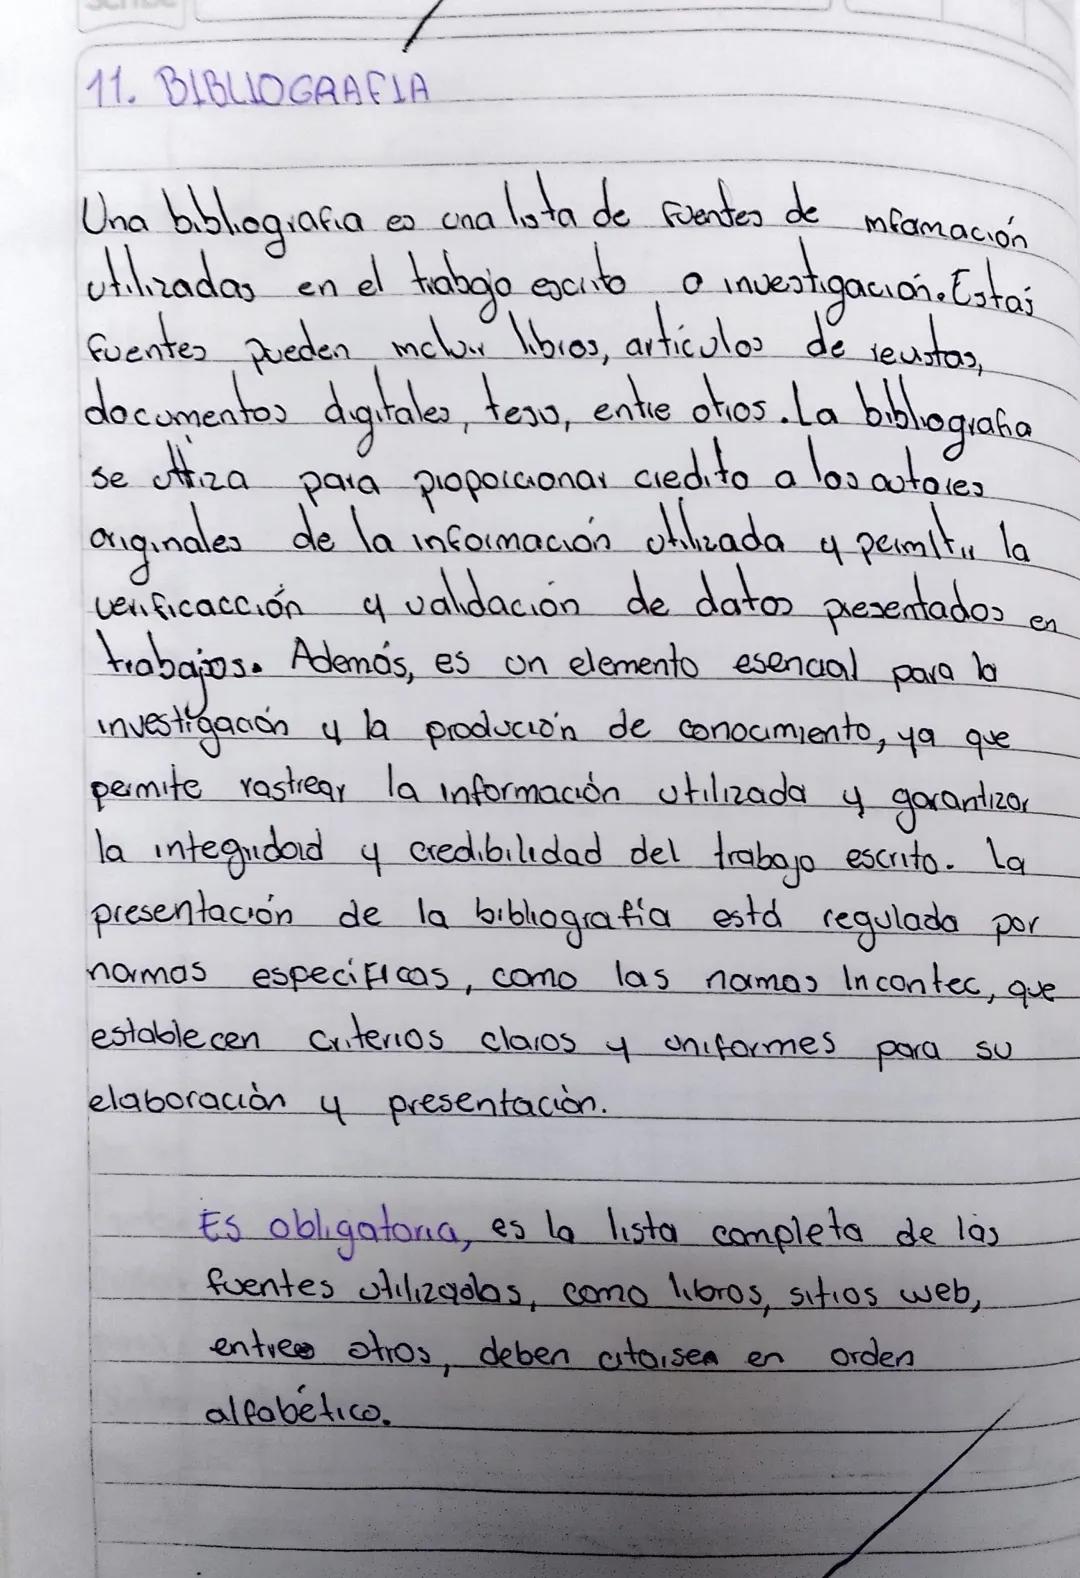 11. BIBLIOGRAFIA
Una bibliografia es una lista de fuentes de infamación
utilizadas en el trabajo escrito o investigación. Estas
fuentes pueden incluir libros, artículos de revistas,
documentos digitales, tesis, entre otros. La bibliografia
se utiliza para proporcionar credito a los autores
originales de la información utilizada y permitir la
verificacción y validación de datos presentados en
trabajos. Además, es un elemento esencial para la
investigación y la produción de conocimiento, ya que
permite rastrear la información utilizada y garantizar
la integridad y credibilidad del trabajo escrito. La
presentación de la bibliografía está regulada por
normas especificas, como las normas Incontec, que
establecen criterios claros y uniformes para su
elaboración y presentación.
Es obligatoria, es la lista completa de las
fuentes utilizadas, como libros, sitios web,
entre otros, deben citarsen en orden
alfabético.